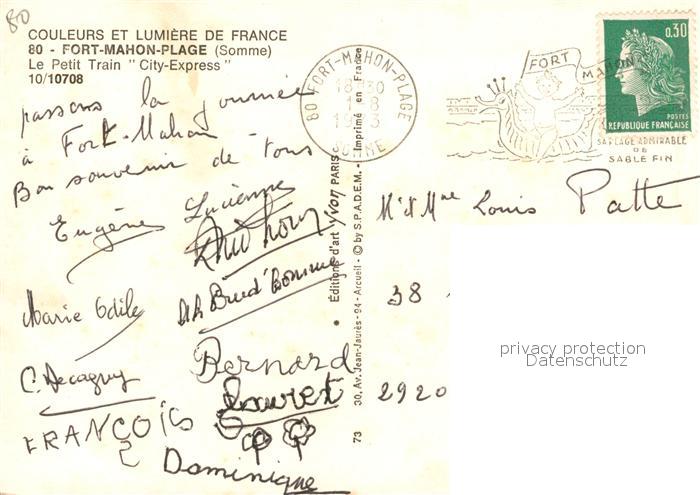 80
COULEURS ET LUMIÈRE DE FRANCE
80 - FORT-MAHON-PLAGE (Somme)
Le Petit Train "City-Express"
10/10708
passons la journée
à Fort-Mahon
Bon souvenir de tous
Eugène Lucienne
Marie Odile
Bernard
FRANÇOIS
Dominique
Éditions d'art Yvon PARIS
30, Av. Jean-Jaurès - 94 - Arcueil - © by S.P.A.D.E.M. - Imprimé en France
73
80 FORT-MAHON-PLAGE
18 30
1-8
SOMME
FORT MAHON
SA PLAGE ADMIRABLE
DE
SABLE FIN
0,30
POSTES
REPUBLIQUE FRANÇAISE
Mr et Mme Louis Patte
38
2920
privacy protection
Datenschutz